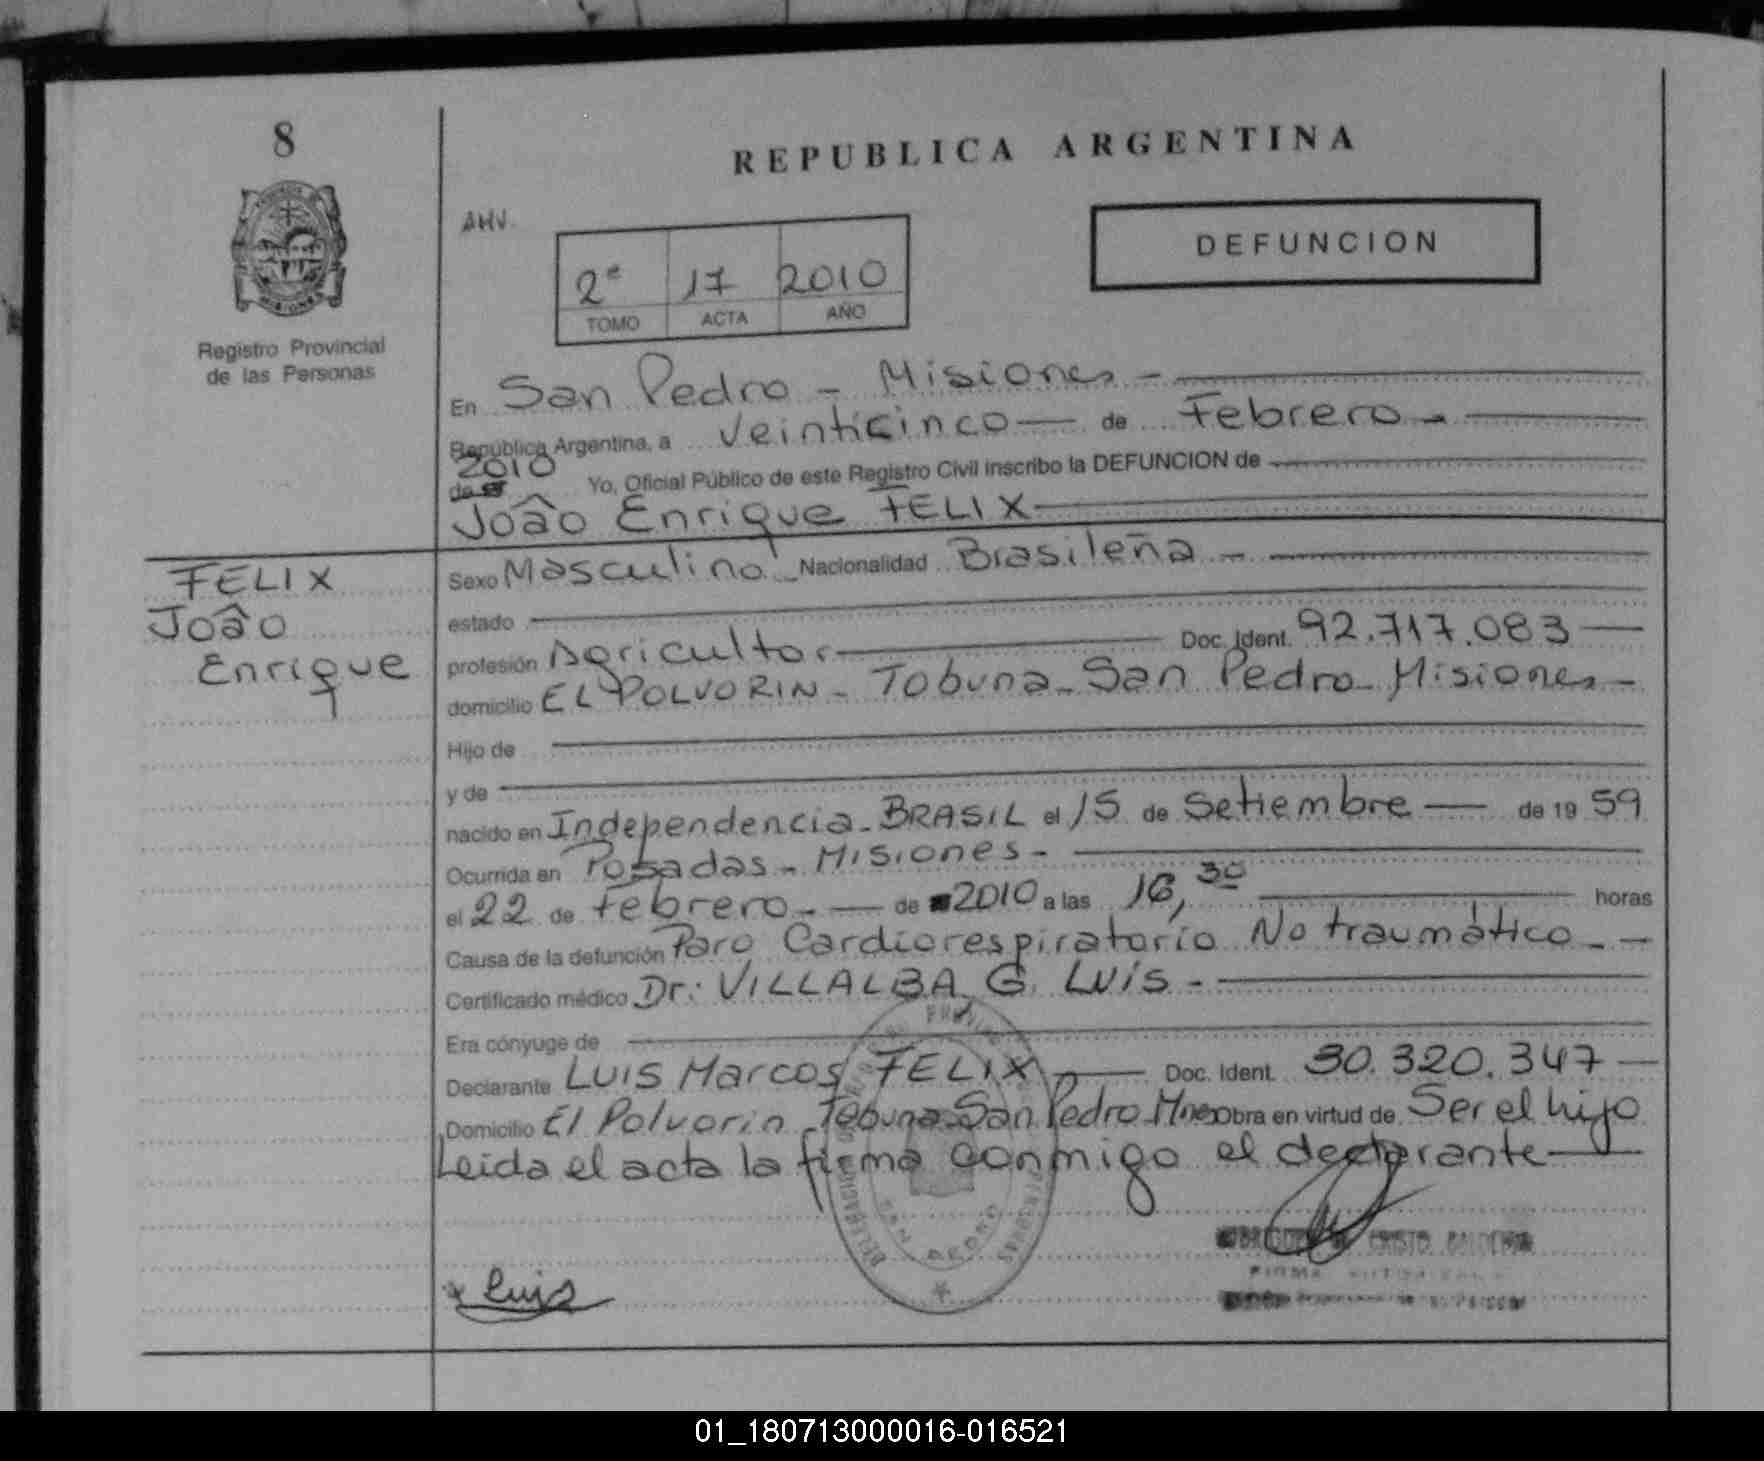 8
REPUBLICA ARGENTINA
MISIONES
AHV.
DEFUNCION
2º 17 2010
TOMO ACTA AÑO
Registro Provincial
de las Personas
En San Pedro - Misiones -
República Argentina, a Veinticinco de Febrero -
2010
de Yo, Oficial Público de este Registro Civil inscribo la DEFUNCION de
Joâo Enrique FELIX
FELIX
Joâo
Enrique
Sexo Masculino - Nacionalidad Brasileña -
estado
profesión Agricultor Doc. Ident. 92.717.083
domicilio EL POLVORIN - Tobuna - San Pedro - Misiones -
Hijo de
y de
nacido en Independencia - BRASIL el 15 de Setiembre de 19 59
Ocurrida en Posadas - Misiones -
el 22 de Febrero - de 2010 a las 16,30 horas
Causa de la defunción Paro Cardiorespiratorio No traumático -
Certificado médico Dr: VILLALBA, G. LUIS -
Era cónyuge de
Declarante LUIS Marcos FELIX Doc. Ident. 30.320.347
Domicilio El Polvorin - Tobuna - San Pedro Mnes Obra en virtud de Ser el hijo
Leida el acta la firma conmigo el declarante
SAN PEDRO
x Luis
FIRMA
01_180713000016-016521